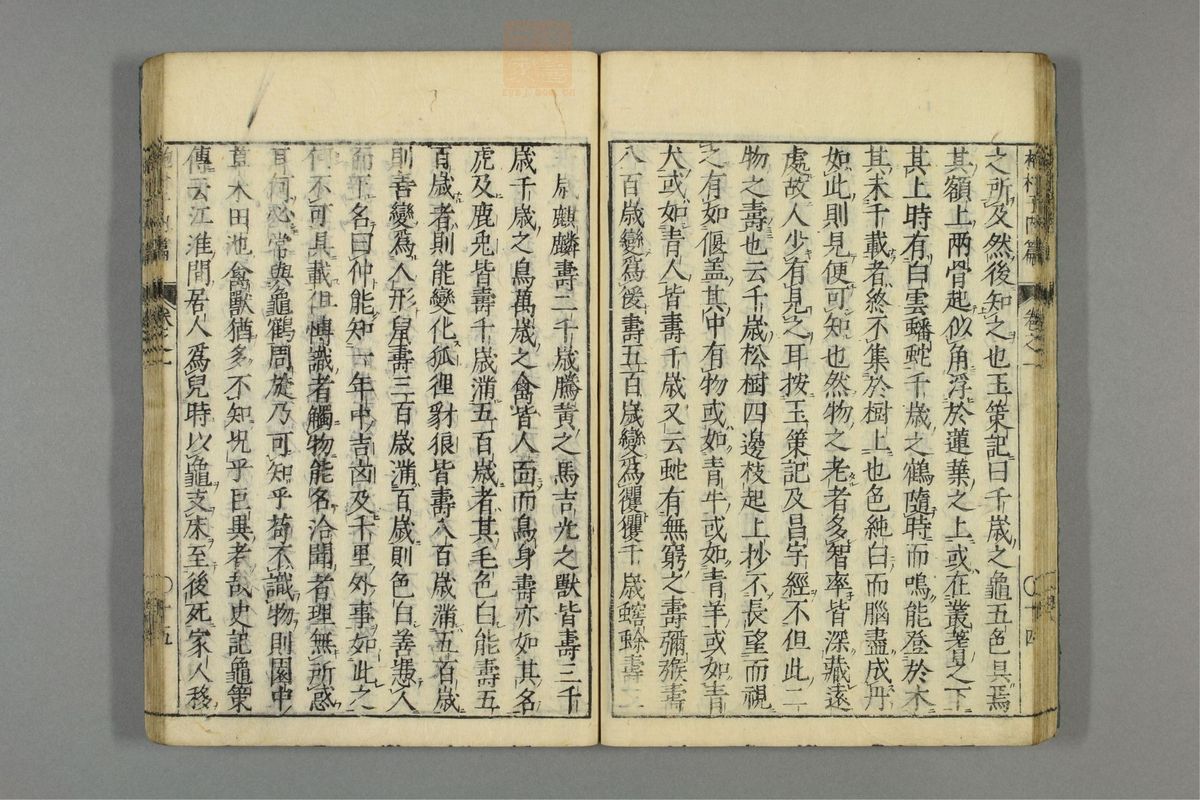 之所及然後知之也玉策記曰千歲之龜五色具焉
其額上两骨起似角浮於蓮葉之上或在叢蓍之下
其上時有白雲蟠蛇千歲之鶴隨時而鳴能登於木
其未千載者終不集於樹上也色純白而腦盡成丹
如此則見便可知也然物之老者多智率皆深藏遠
處故人少有見之耳按玉策記及昌宇經不但此二
物之壽也云千歲松樹四邊枝起上抄不長望而視
之有如偃盖其中有物或如青牛或如青羊或如青
犬或如青人皆壽千歲又云蛇有無窮之壽獼猴壽
八百歲變爲猨壽五百歲變爲玃玃千歲蟾蜍壽三
千歲麒麟壽二千歲騰黄之馬吉光之獸皆壽三千
歲千歲之鳥萬歲之禽皆人面而鳥身壽亦如其名
虎及鹿兎皆壽千歲滿五百歲者其毛色白能壽五
百歲者則能變化狐狸豺狼皆壽八百歲滿五百歲
則善變爲人形鼠壽三百歲滿百歲則色白善憑人
而下名曰仲能知一年中吉凶及千里外事如此之
何不可具載但愽識者觸物能名洽聞者理無所惑
耳何必常與龜鶴周旋乃可知乎苟不識物則園中
草木田池禽獸猶多不知况乎巨異者哉史記龜策
傳云江淮間居人爲兒時以龜支床至後死家人移
卷之一
十四
十五